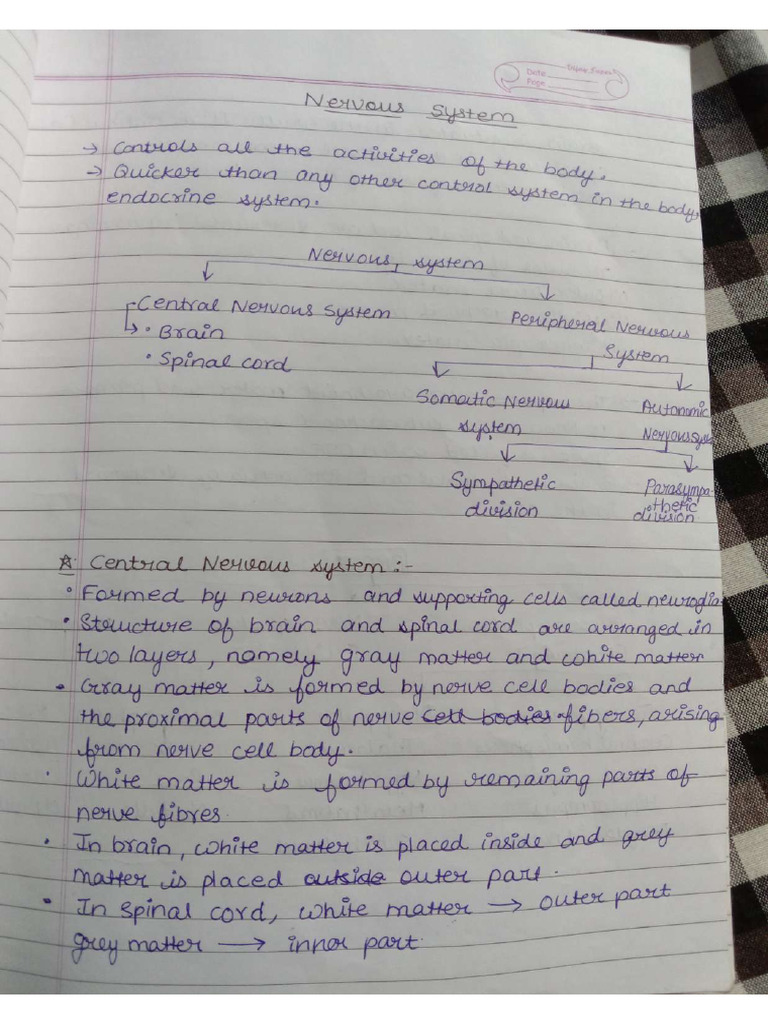 Date
Page
Nervous System
→ Controls all the activities of the body.
→ Quicker than any other control system in the body,
endocrine system.
Nervous, system
Central Nervous System
• Brain
• Spinal cord
Peripheral Nervous
System
Somatic Nervous
system
Autonomic
Nervous Syst
Sympathetic
division
Parasympa-
thetic
division
☆ Central Nervous system :-
• Formed by neurons and supporting cells called neuroglia
• Structure of brain and spinal cord are arranged in
two layers, namely gray matter and white matter
• Gray matter is formed by nerve cell bodies and
the proximal parts of nerve cell bodies fibers, arising
from nerve cell body.
• White matter is formed by remaining parts of
nerve fibres.
• In brain, white matter is placed inside and grey
matter is placed outside outer part.
• In Spinal cord, white matter → outer part
grey matter → inner part.